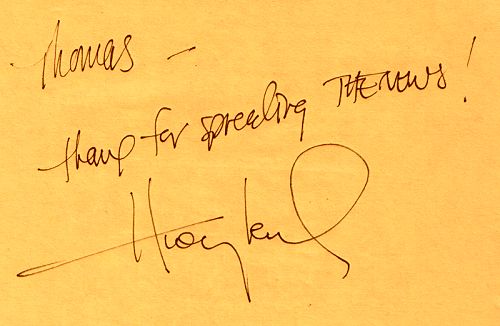 Thomas –
thanx for spreading THE NEWS!
Huey Lewis